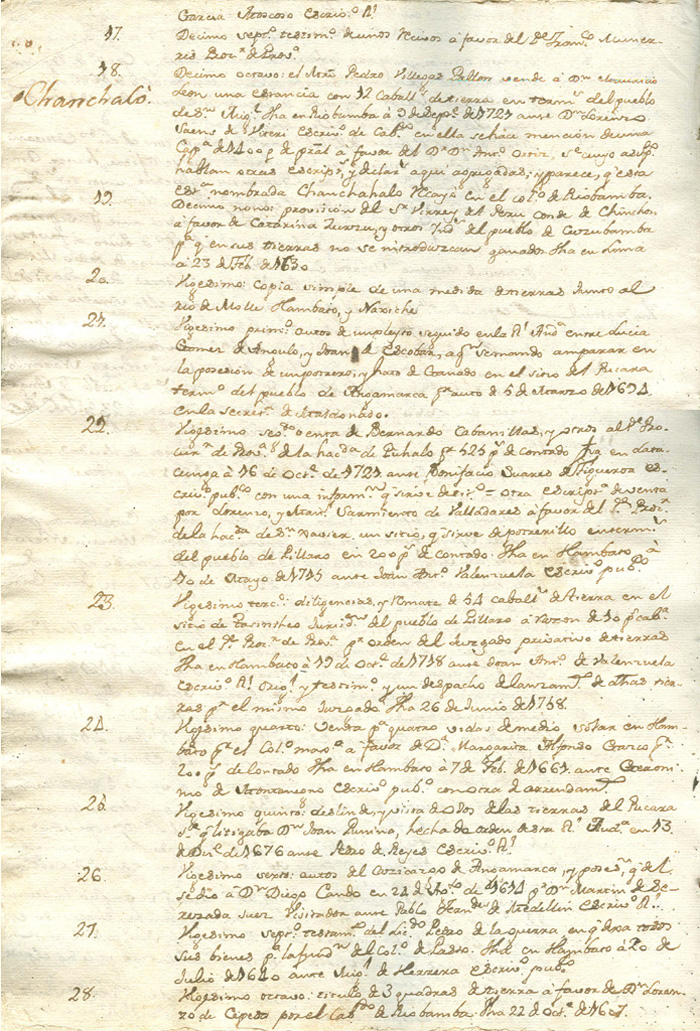 Garcia Moscoso Escriv.º R.l
17. Decimo sept.º testim.º de unos Recivos à favor del P.e Fran.co Munier-
ris Proc.r de Prov.ª
18. Decimo octavo: el Mrô Pedro Villegas Pallon vende à D.n Mauricio
Chanchaló. Leon una estancia con 12 Caball.s de tierra en term.s del pueblo
de S.n Mig.l fha en Riobamba à 9 de Sept.e de 1721 ante D.n Lorenzo
Saens de Viteri Escriv.º de Cab.do en ella se hace mención de una
Cap.ª de 1400 p.s de pral à favor del D.r D.n Ant.º Ortiz, s.e cuyo assu.to
hablan otras escrip.s, y declar.s aqui agregadas; y parece, q̃ esta
es.ª nombrada Chanchahalo Recayò en el col.º de Riobamba.
19. Decimo nono: provicion del S.r Virrey del Peru conde de Chinchon,
à favor de Catarina y otros Ind.s del pueblo de Cuzubamba
p.ª q̃ en sus tierras no se introduzcan ganados fha en Lima
à 23 de Feb.º de 1630
20. Vigesimo: Copia simple de una medida de tierras junto al
rio de Molle Hambato, y Naxiche
21. Vigesimo prim.º autos de un pleyto seguido en la R.l Aud.ª entre Lucia
Gomez de Angulo, y Joan de Escobar, a q.n se mando amparar en
la posesion de un potrero, y hato de Ganado en el sitio del Pucara
term.º del pueblo de Angamarca p.r auto de 5 de Marzo de 1631
en la secret.ª de Maldonado.
22. Vigesimo seg.do venta de Bernardo Cabanillas, y otros al P.e Pro-
cur.r de Prov.ª de la haz.da de Puhalo p.r 525 p.s de contado fha en Lata-
cunga à 16 de Oct.e de 1721 ante Bonifacio Suares de Figueroa es-
criv.º pub.co con una inform.n q̃ sirve de tit.º = otra escript.ª de venta
por Lorenzo, y Sarmiento de Valladares à favor del P.e Proc.r
de la haz.da de S.n Xavier, un sitio, q̃ sirve de potrerillo en term.s
del pueblo de Pillaro en 200 p.s de contado fha en Hambato à
10 de Mayo de 1715 ante Joan Ant.º Valenzuela Escriv.º pub.co
23. Vigesimo terc.º: diligencias, y Remate de 54 caball.s de tierra en el
sitio de Jurisd.n del pueblo de Pillaro à razon de 10 p.s cab.ª
en el P.e Proc.r de Prov.ª p.r orden del Juzgado privativo de tierras
fha en Hambato à 19 de Oct.e de 1718 ante Joan Ant.º de Valenzuela
Escriv.º R.l Orig.l y testim.º y un despacho de lanzam.to de dhas tier-
ras p.r el mismo Juzgado fha 26 de Junio de 1718.
24. Vigesimo quarto: venta p.r quatro vidas de medio solar en Ham-
bato p.r el Col.º max.º à favor de D.ª Margarita Alfonso Carco p.r
200 p.s de contado fha en Hambato à 7 de Feb.º de 1661 ante Geroni-
mo de Montenegro Escriv.º pub.co con otra de arrendam.to
25. Vigesimo quinto: deslinde, y vista de ojos de las tierras del Pucara
s.e q̃ litigaba D.n Joan Punino, hecha de orden desta R.l Aud.ª en 13
de Dic.e de 1676 ante Pedro de Reyes Escriv.º R.l
26. Vigesimo sexto: autos del Cazicazgo de Angamarca, y poses.n q̃ del
se dio à D.n Diego Cando en 22 de de 1614 p.r D.n Martin de Be-
rrezada Juez Visitador ante Pablo Fran.des de Medellin Escriv.º R.l
27. Vigesimo sept.º testam.to del Lic.do Pedro de la Guerra en q̃ dexa todos
sus bienes p.ª la fund.n del Col.º de Pasto. fha en Hambato à 20 de
Julio de 1640 ante Mig.l de Herrera Escriv.º pub.co
28. Vigesimo octavo: titulo de 3 quadras de tierra à favor de D.n Loren-
zo de Cepeda por el Cab.do de Riobamba fha 22 de Oct.e de 1601.